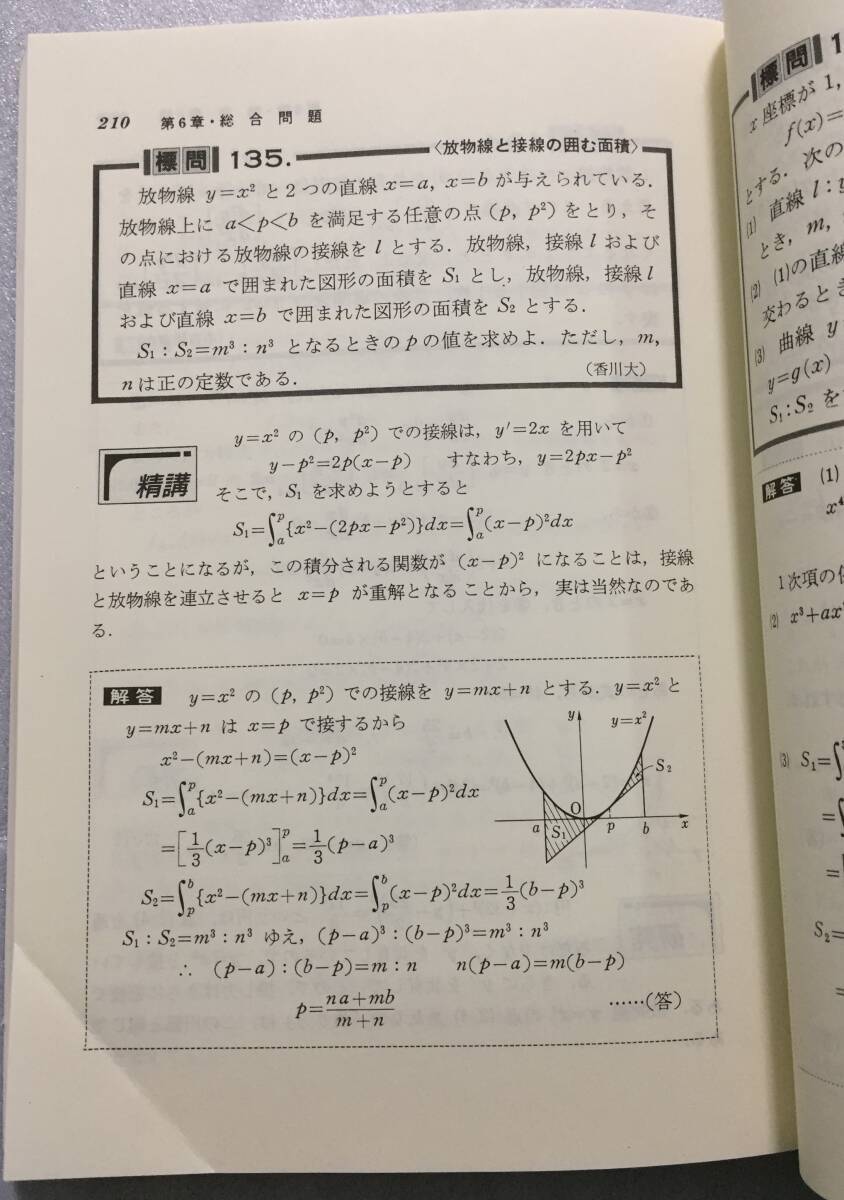 210 第6章・総合問題
標問 135.
〈放物線と接線の囲む面積〉
放物線 y=x² と2つの直線 x=a, x=b が与えられている.
放物線上に a<p<b を満足する任意の点(p, p²)をとり, そ
の点における放物線の接線を l とする. 放物線, 接線 l および
直線 x=a で囲まれた図形の面積を S₁ とし, 放物線, 接線 l
および直線 x=b で囲まれた図形の面積を S₂ とする.
S₁:S₂=m³:n³ となるときの p の値を求めよ. ただし, m,
n は正の定数である. (香川大)
精講
y=x² の (p, p²) での接線は, y'=2x を用いて
y-p²=2p(x-p) すなわち, y=2px-p²
そこで, S₁ を求めようとすると
S₁=∫ₐᵖ{x²-(2px-p²)}dx=∫ₐᵖ(x-p)²dx
ということになるが, この積分される関数が (x-p)² になることは, 接線
と放物線を連立させると x=p が重解となることから, 実は当然なのであ
る.
解答 y=x² の (p, p²) での接線を y=mx+n とする. y=x² と
y=mx+n は x=p で接するから
x²-(mx+n)=(x-p)²
S₁=∫ₐᵖ{x²-(mx+n)}dx=∫ₐᵖ(x-p)²dx
=[1/3(x-p)³]ₐᵖ=1/3(p-a)³
S₂=∫ₚᵇ{x²-(mx+n)}dx=∫ₚᵇ(x-p)²dx=1/3(b-p)³
S₁:S₂=m³:n³ ゆえ, (p-a)³:(b-p)³=m³:n³
∴ (p-a):(b-p)=m:n n(p-a)=m(b-p)
p=(na+mb)/(m+n) ……(答)
y
y=x²
S₂
O
a
S₁
p
b
x
標問 1
x 座標が 1,
f(x)=
とする. 次の
(1) 直線 l:y
とき, m,
(2) (1)の直線
交わるとき
(3) 曲線 y
y=g(x)
S₁:S₂ を
解答 (1)
x⁴
1次項の係
(2) x³+ax²
(3) S₁=∫
=∫
=
S₂=
=
=